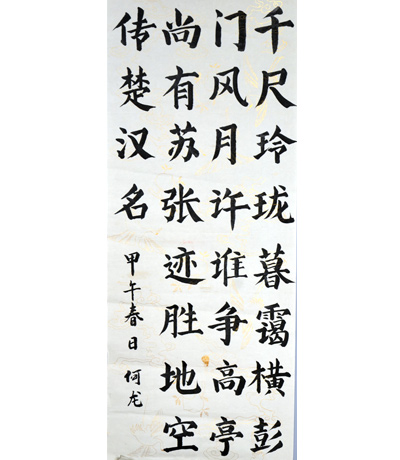 千尺玲珑暮霭横彭
门风月许谁争高亭
尚有苏张迹胜地空
传楚汉名
甲午春日何龙